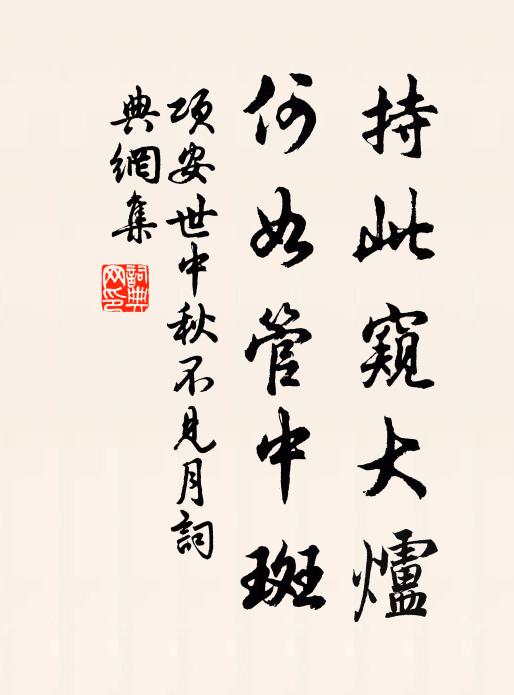 持此窺大爐
何如管中斑
項安世中秋不見月詞
典網集
詞典網印